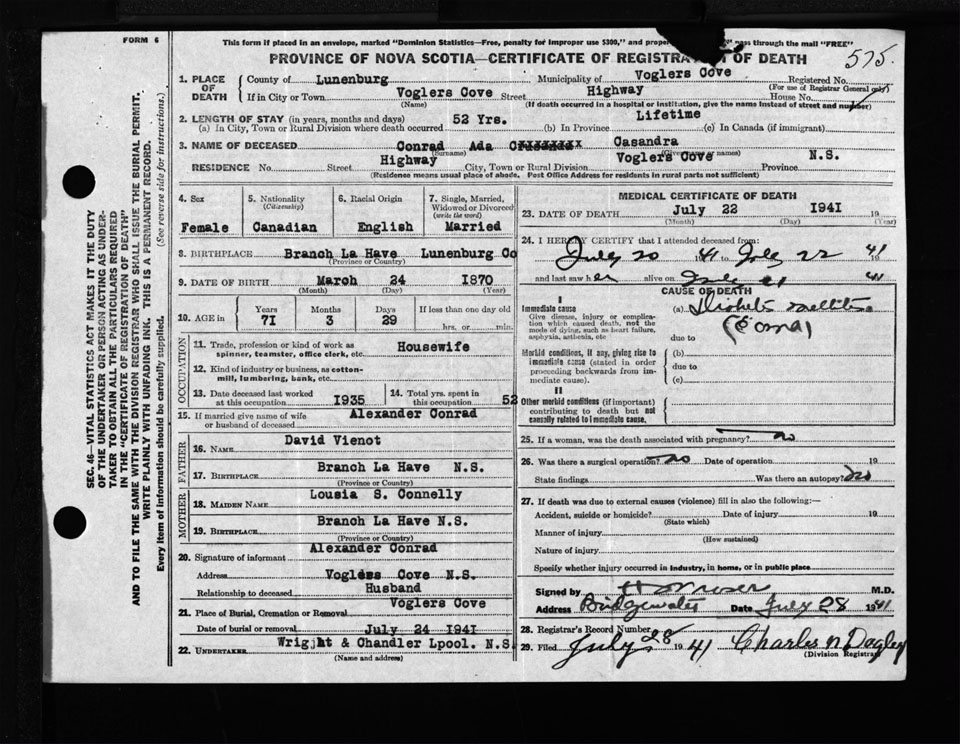 FORM 6
This form if placed in an envelope, marked "Dominion Statistics—Free, penalty for improper use $300," and proper pass through the mail "FREE"
PROVINCE OF NOVA SCOTIA—CERTIFICATE OF REGISTRA OF DEATH
575.
1. PLACE OF DEATH
County of Lunenburg Municipality of Voglers Cove Registered No.
(For use of Registrar General only)
If in City or Town Voglers Cove Street Highway House No.
(Name) (If death occurred in a hospital or institution, give the name instead of street and number)
2. LENGTH OF STAY (in years, months and days)
(a) In City, Town or Rural Division where death occurred 52 Yrs. (b) In Province Lifetime (c) In Canada (if immigrant)
3. NAME OF DECEASED Conrad Ada Casandra
(Surname) names)
RESIDENCE No. Street Highway City, Town or Rural Division Voglers Cove Province N.S.
(Residence means usual place of abode. Post Office Address for residents in rural parts not sufficient)
4. Sex Female
5. Nationality (Citizenship) Canadian
6. Racial Origin English
7. Single, Married, Widowed or Divorced (write the word) Married
8. BIRTHPLACE Branch La Have Lunenburg Co
(Province or Country)
9. DATE OF BIRTH March 24 1870
(Month) (Day) (Year)
10. AGE in Years 71 Months 3 Days 29 If less than one day old hrs. or min.
OCCUPATION
11. Trade, profession or kind of work as spinner, teamster, office clerk, etc. Housewife
12. Kind of industry or business, as cotton-mill, lumbering, bank, etc.
13. Date deceased last worked at this occupation 1935
14. Total yrs. spent in this occupation 52
15. If married give name of wife or husband of deceased Alexander Conrad
FATHER
16. NAME David Vienot
17. BIRTHPLACE Branch La Have N.S.
(Province or Country)
MOTHER
18. MAIDEN NAME Lousia S. Connelly
19. BIRTHPLACE Branch La Have N.S.
(Province or Country)
20. Signature of informant Alexander Conrad
Address Voglers Cove N.S.
Relationship to deceased Husband
21. Place of Burial, Cremation or Removal Voglers Cove
Date of burial or removal July 24 1941
22. UNDERTAKER Wrigjht & Chandler Lpool. N.S.
(Name and address)
MEDICAL CERTIFICATE OF DEATH
23. DATE OF DEATH July 22 1941 19
(Month) (Day) (Year)
24. I HEREBY CERTIFY that I attended deceased from:
July 20 1941 to July 22 1941
and last saw her alive on July 21 41
CAUSE OF DEATH
I
Immediate cause
Give disease, injury or complication which caused death, not the mode of dying, such as heart failure, asphyxia, asthenia, etc
(a) Diabetes mellitus
(Coma)
due to
Morbid conditions, if any, giving rise to immediate cause (stated in order proceeding backwards from immediate cause).
(b)
due to
(c)
II
Other morbid conditions (if important) contributing to death but not causally related to immediate cause.
25. If a woman, was the death associated with pregnancy? no
26. Was there a surgical operation? no Date of operation 19
State findings Was there an autopsy? no
27. If death was due to external causes (violence) fill in also the following:—
Accident, suicide or homicide? Date of injury 19
(State which)
Manner of injury
(How sustained)
Nature of injury
Specify whether injury occurred in industry, in home, or in public place
Signed by M.D.
Address Bridgewater Date July 28 1941
28. Registrar's Record Number
29. Filed July 28 1941 Charles N Dagley
(Division Registrar)
SEC. 46—VITAL STATISTICS ACT MAKES IT THE DUTY
OF THE UNDERTAKER OR PERSON ACTING AS UNDER-
TAKER TO OBTAIN ALL THE PARTICULARS REQUIRED
IN THE "CERTIFICATE OF REGISTRATION OF DEATH"
AND TO FILE THE SAME WITH THE DIVISION REGISTRAR WHO SHALL ISSUE THE BURIAL PERMIT.
WRITE PLAINLY WITH UNFADING INK. THIS IS A PERMANENT RECORD.
Every item of information should be carefully supplied. (See reverse side for instructions.)